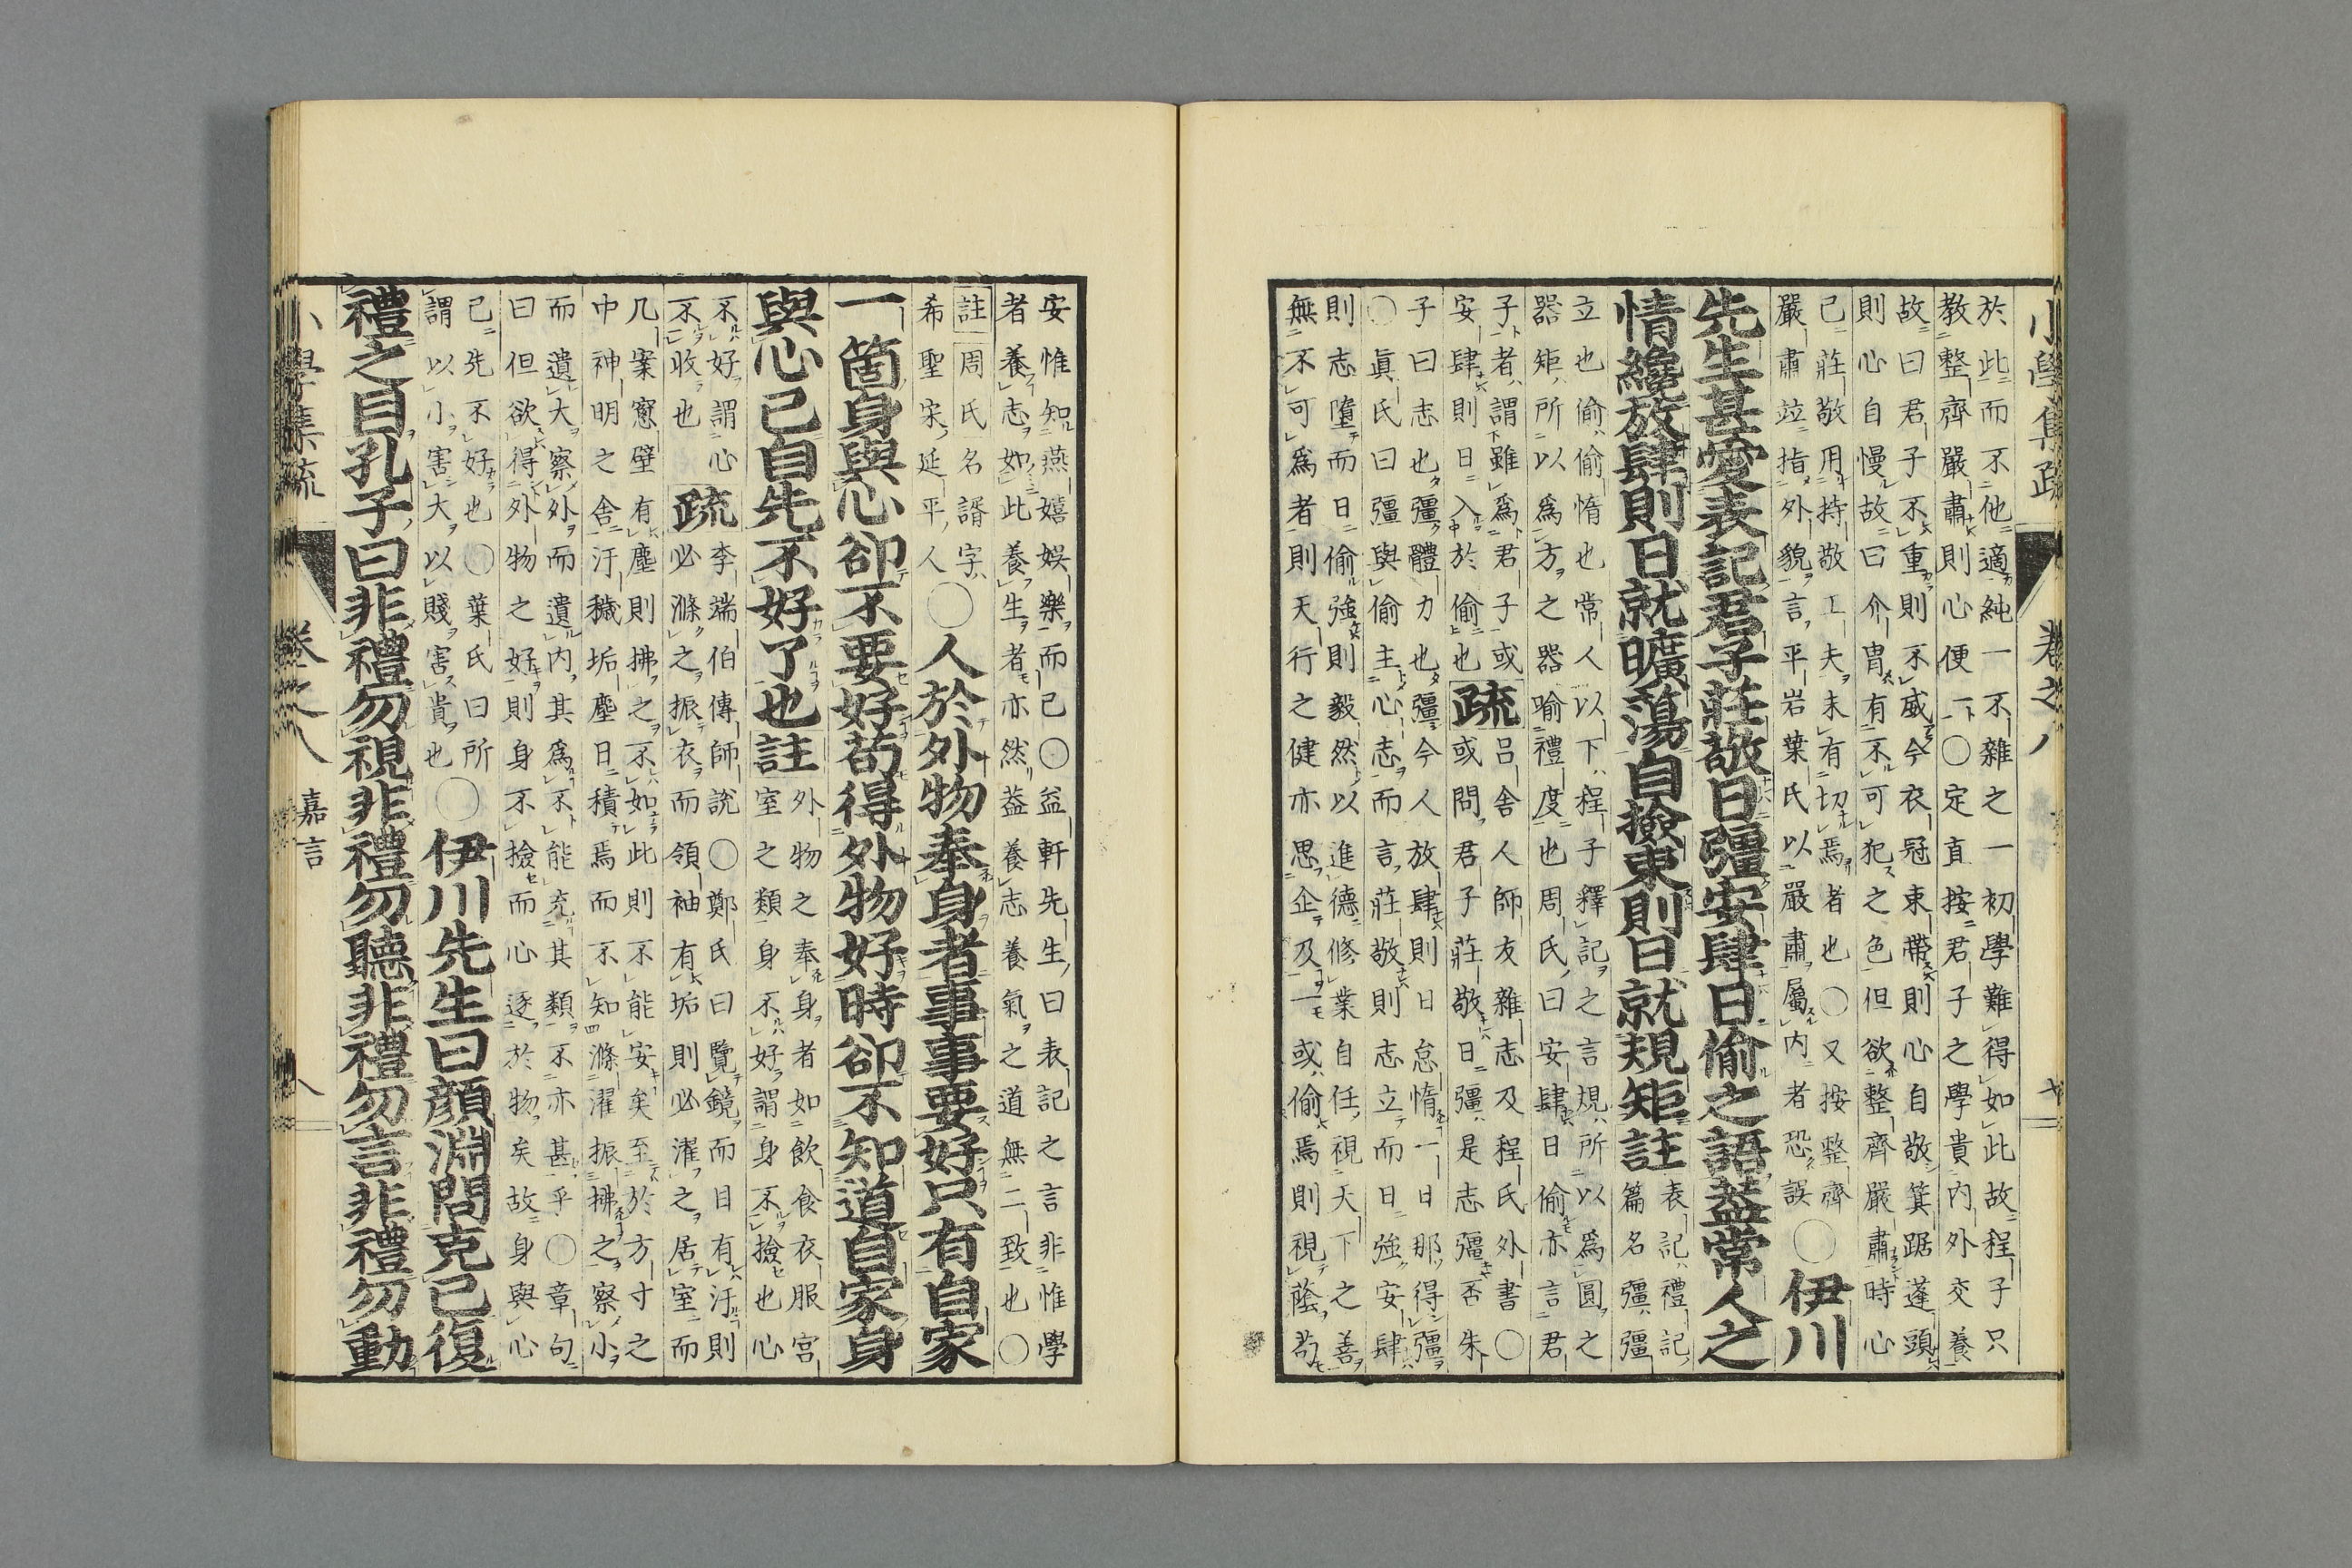 小學集疏 卷之八
於此而不他適純一不雜之一初學難得如此故程子只
教整齊嚴肅則心便一〇定直按君子之學貴內外交養
故曰君子不重則不威今衣冠束帶則心自敬箕踞蓬頭
則心自慢故曰介冑有不可犯之色但欲整齊嚴肅時心
已莊敬用持敬工夫未有切焉者也〇又按整齊
嚴肅竝指外貌言平岩葉氏以嚴肅屬內者恐誤〇伊川
先生甚愛表記君子莊敬日彊安肆日偷之語蓋常人之
情纔放肆則日就曠蕩自撿束則日就規矩註
表記禮記
篇名彊彊
立也偷偷惰也常人以下程子釋記之言規所以爲圓之
器矩所以爲方之器喻禮度也周氏曰安肆日偷亦言君
子者謂雖爲君子或
安肆則日入於偷也
疏
呂舍人師友雜志及程氏外書〇
或問君子莊敬日彊是志彊否朱
子曰志也彊體力也彊今人放肆則日怠惰一日那得彊
〇眞氏曰彊與偷主心志而言莊敬則志立而日強安肆
則志墮而日偷強則毅然以進德修業自任視天下之善
無不可爲者則天行之健亦思企及一或偷焉則視蔭苟
安惟知燕嬉娛樂而已〇益軒先生曰表記之言非惟學
者養志如此養生者亦然蓋養志養氣之道無二致也〇
註
周氏名諝字
希聖宋延平人
〇人於外物奉身者事事要好只有自家
一箇身與心卻不要好苟得外物好時卻不知道自家身
與心已自先不好了也註
外物之奉身者如飮食衣服宮
室之類身不好謂身不撿也心
不好謂心
不收也
疏
李端伯傳師說〇鄭氏曰覽鏡而目有汙則
必滌之振衣而領袖有垢則必濯之居室而
几案窻壁有塵則拂之不如此則不能安矣至於方寸之
中神明之舍汙穢垢塵日積焉而不知滌濯振拂之察小
而遺大察外而遺內其爲不能充其類不亦甚乎〇章句
曰但欲得外物之好則身不撿而心逐於物矣故身與心
已先不好也〇葉氏曰所
謂以小害大以賤害貴也
〇伊川先生曰顏淵問克已復
禮之目孔子曰非禮勿視非禮勿聽非禮勿言非禮勿動
小學集疏 卷之八 嘉言 八